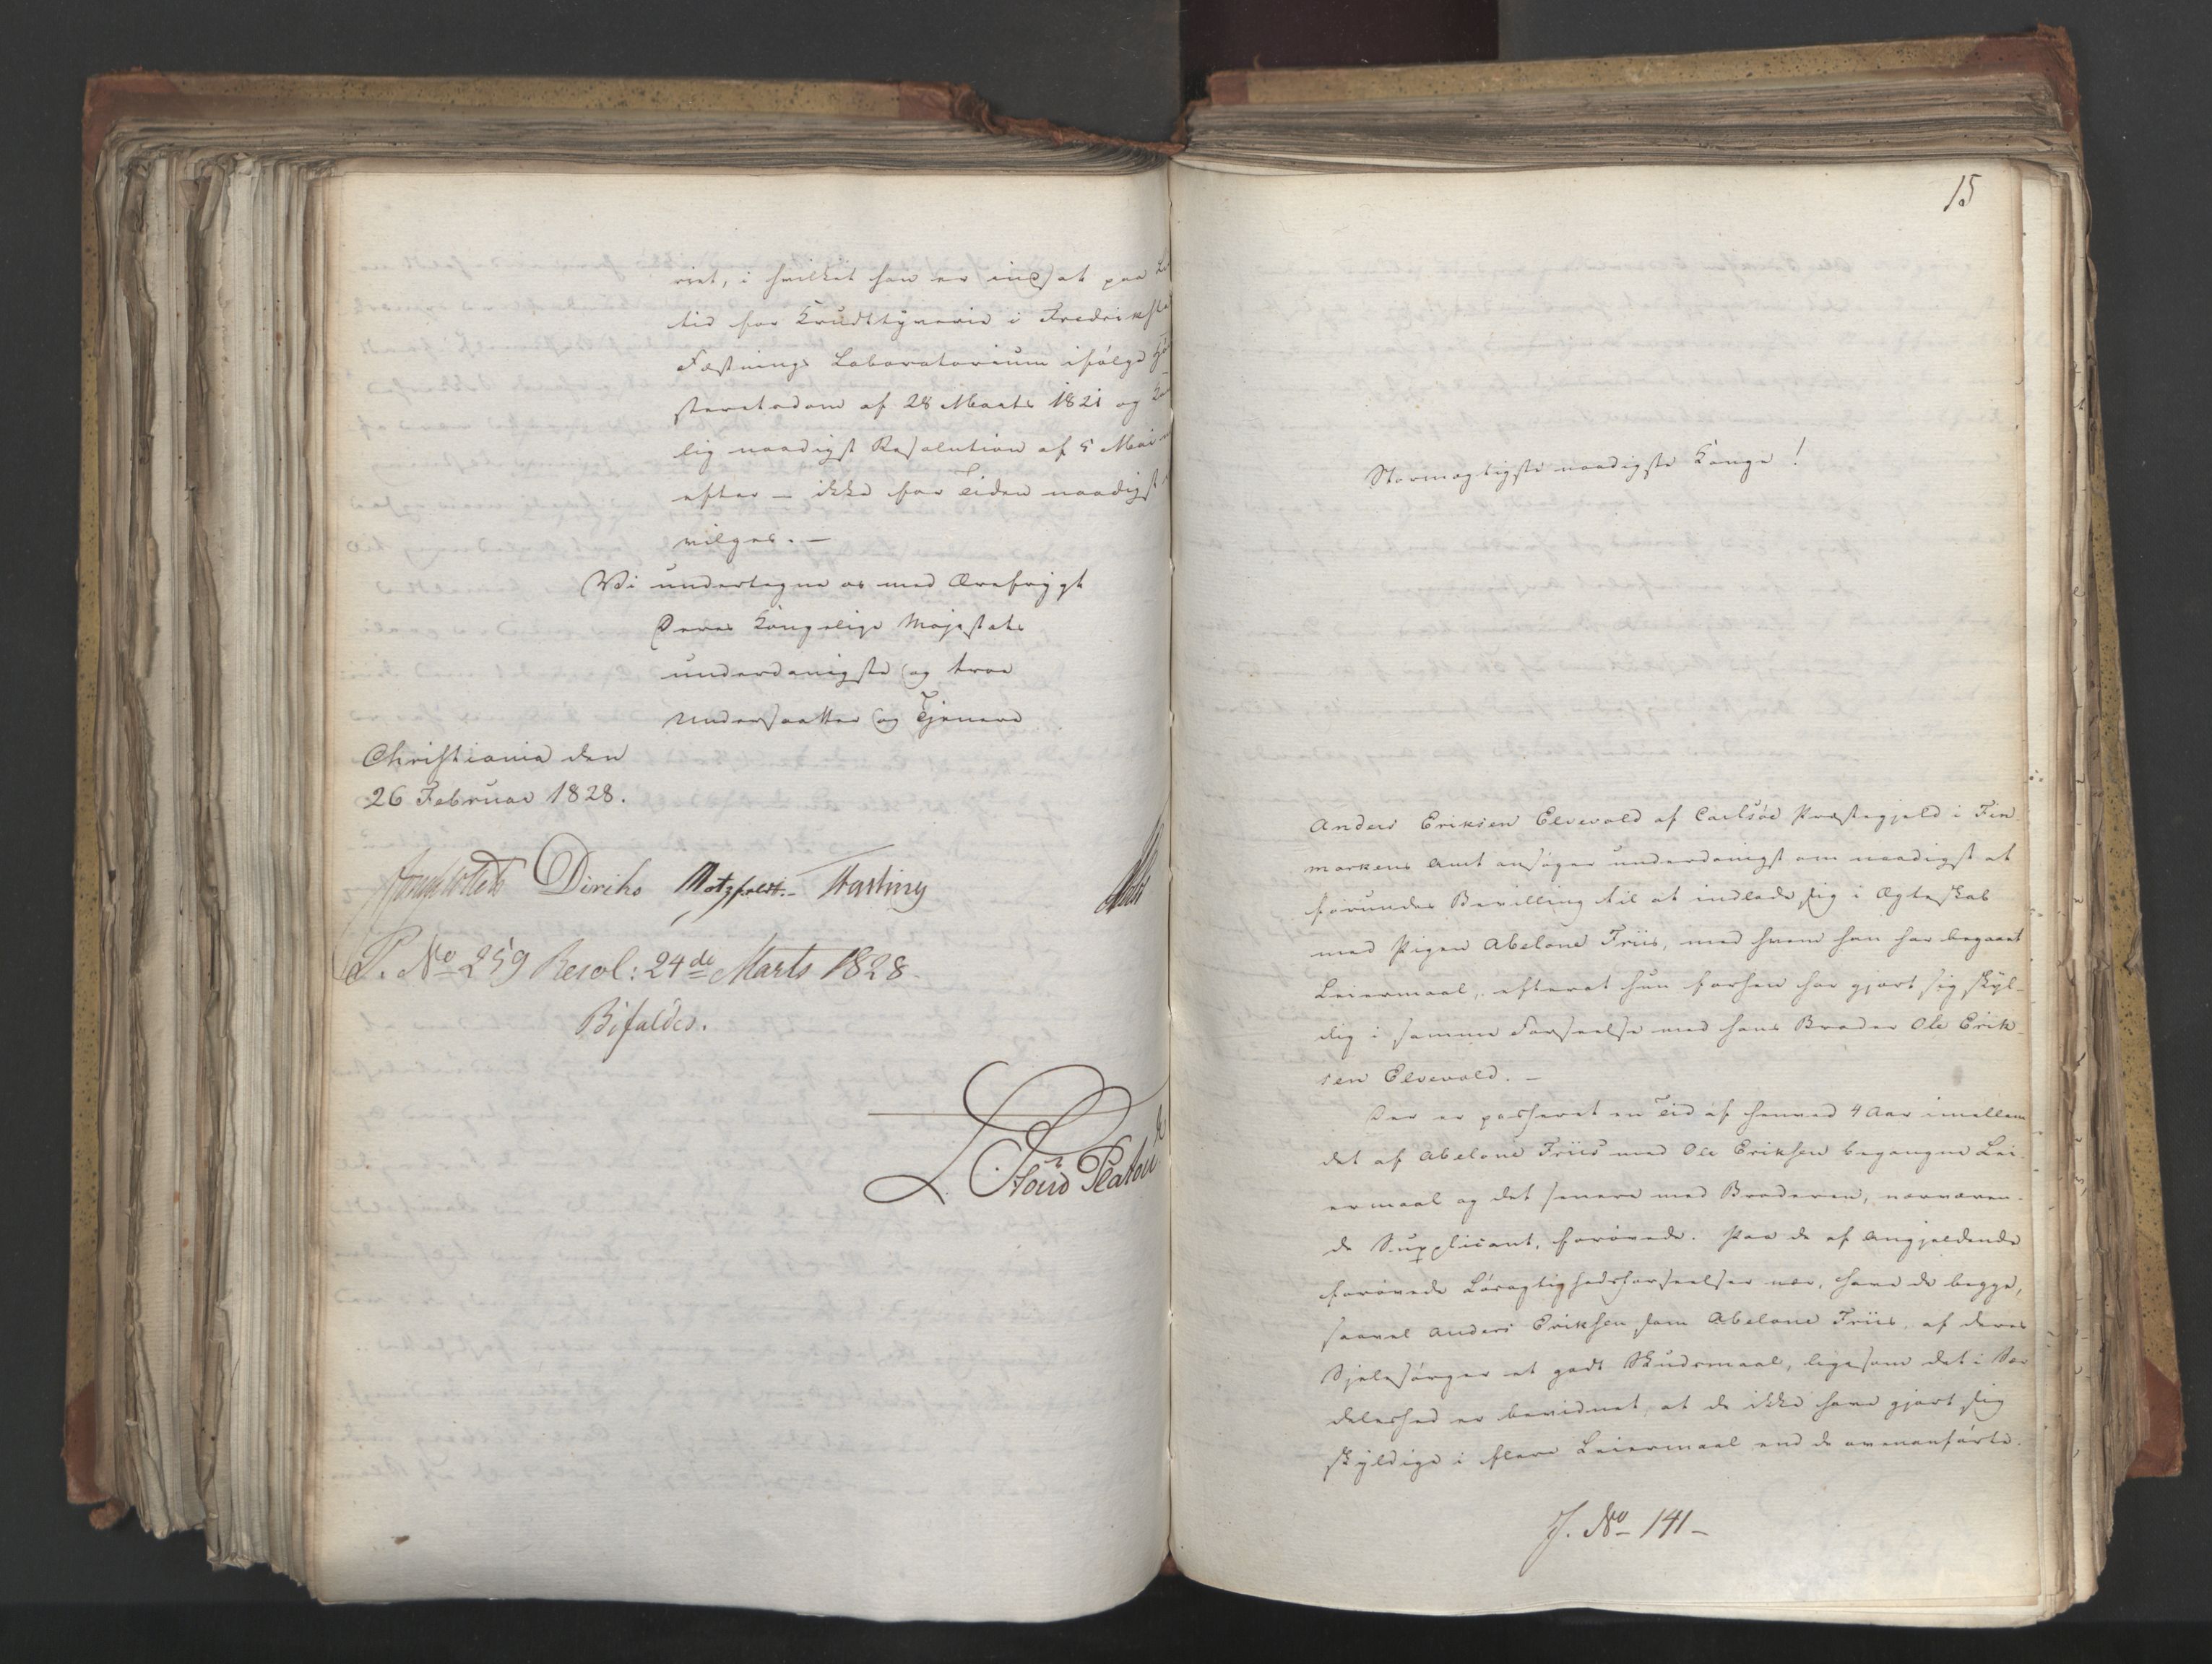 riet, i hvilket han er indsat paa
tid for Krudttyverie i Fredriksta
Fæstnings Laboratorium ifølge Høi
steretsdom af 28 Marts 1821 og Kon
lig naadigst Resolution af 5 Mai
efter – ikke for Tiden naadigst
vilges. –
Vi undertegne os med Ærefrygt
Deres Kongelige Majestæts
underdanigste og troe
Undersaatter og Tjenere
Christiania den
26 Februar 1828.
Diriks Motzfeldt. Fasting
P. No 259 Resol: 24de Marts 1828.
Bifaldes.
15
Stormægtigste naadigste Konge!
Anders Eriksen Elvevold af Carlsöe Præstegjeld i Fin-
markens Amt ansøger underdanigst om naadigst at
forundes Bevilling til at indlade sig i Ægteskab
med Pigen Abelone Friis, med hvem han har begaaet
Leiermaal, efterat hun forhen har gjort sig skyl-
dig i samme Forseelse med hans Broder Ole Erik-
sen Elvevold. –
Der er passeret en Tid af henved 4 Aar imellem
det af Abelone Friis med Ole Eriksen begangne Lei-
ermaal og det senere med Broderen, nærværen-
de Supplicant, forøvede. Paa de af Angjeldende
forøvede Løsagtighedsforseelser nær, have de begge,
saavel Anders Eriksen som Abelone Friis, af deres
Sjelesørger et godt Skudsmaal, ligesom det i Sær-
deleshed er bevidnet, at de ikke have gjort sig
skyldige i flere Leiermaal end de ovenanførte.
J. No 141 –